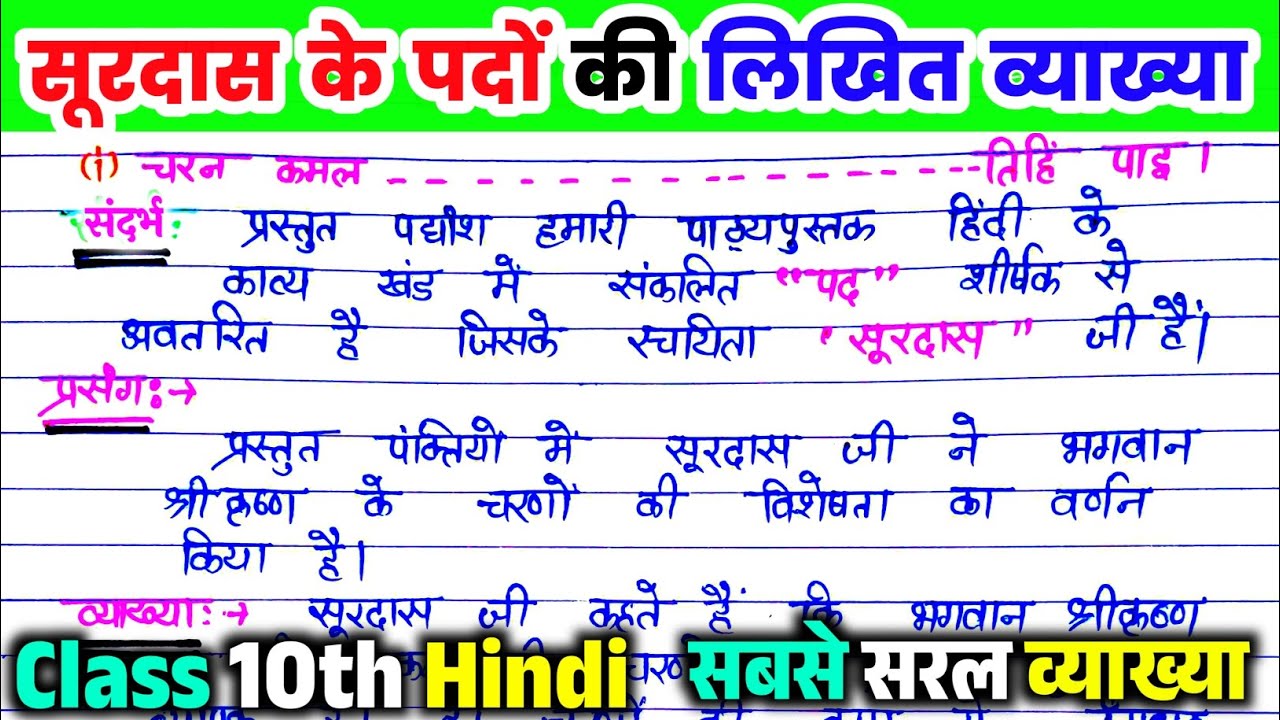 सूरदास के पदों की लिखित व्याख्या
(i) चरन कमल ---------------- तिहिं पाइ ।
संदर्भ: प्रस्तुत पद्यांश हमारी पाठ्यपुस्तक हिंदी के
काव्य खंड में संकलित "पद" शीर्षक से
अवतरित है जिसके रचयिता "सूरदास" जी हैं।
प्रसंग:→
प्रस्तुत पंक्तियों में सूरदास जी ने भगवान
श्रीकृष्ण के चरणों की विशेषता का वर्णन
किया है।
व्याख्या:→ सूरदास जी कहते हैं कि भगवान श्रीकृष्ण
Class 10th Hindi सबसे सरल व्याख्या